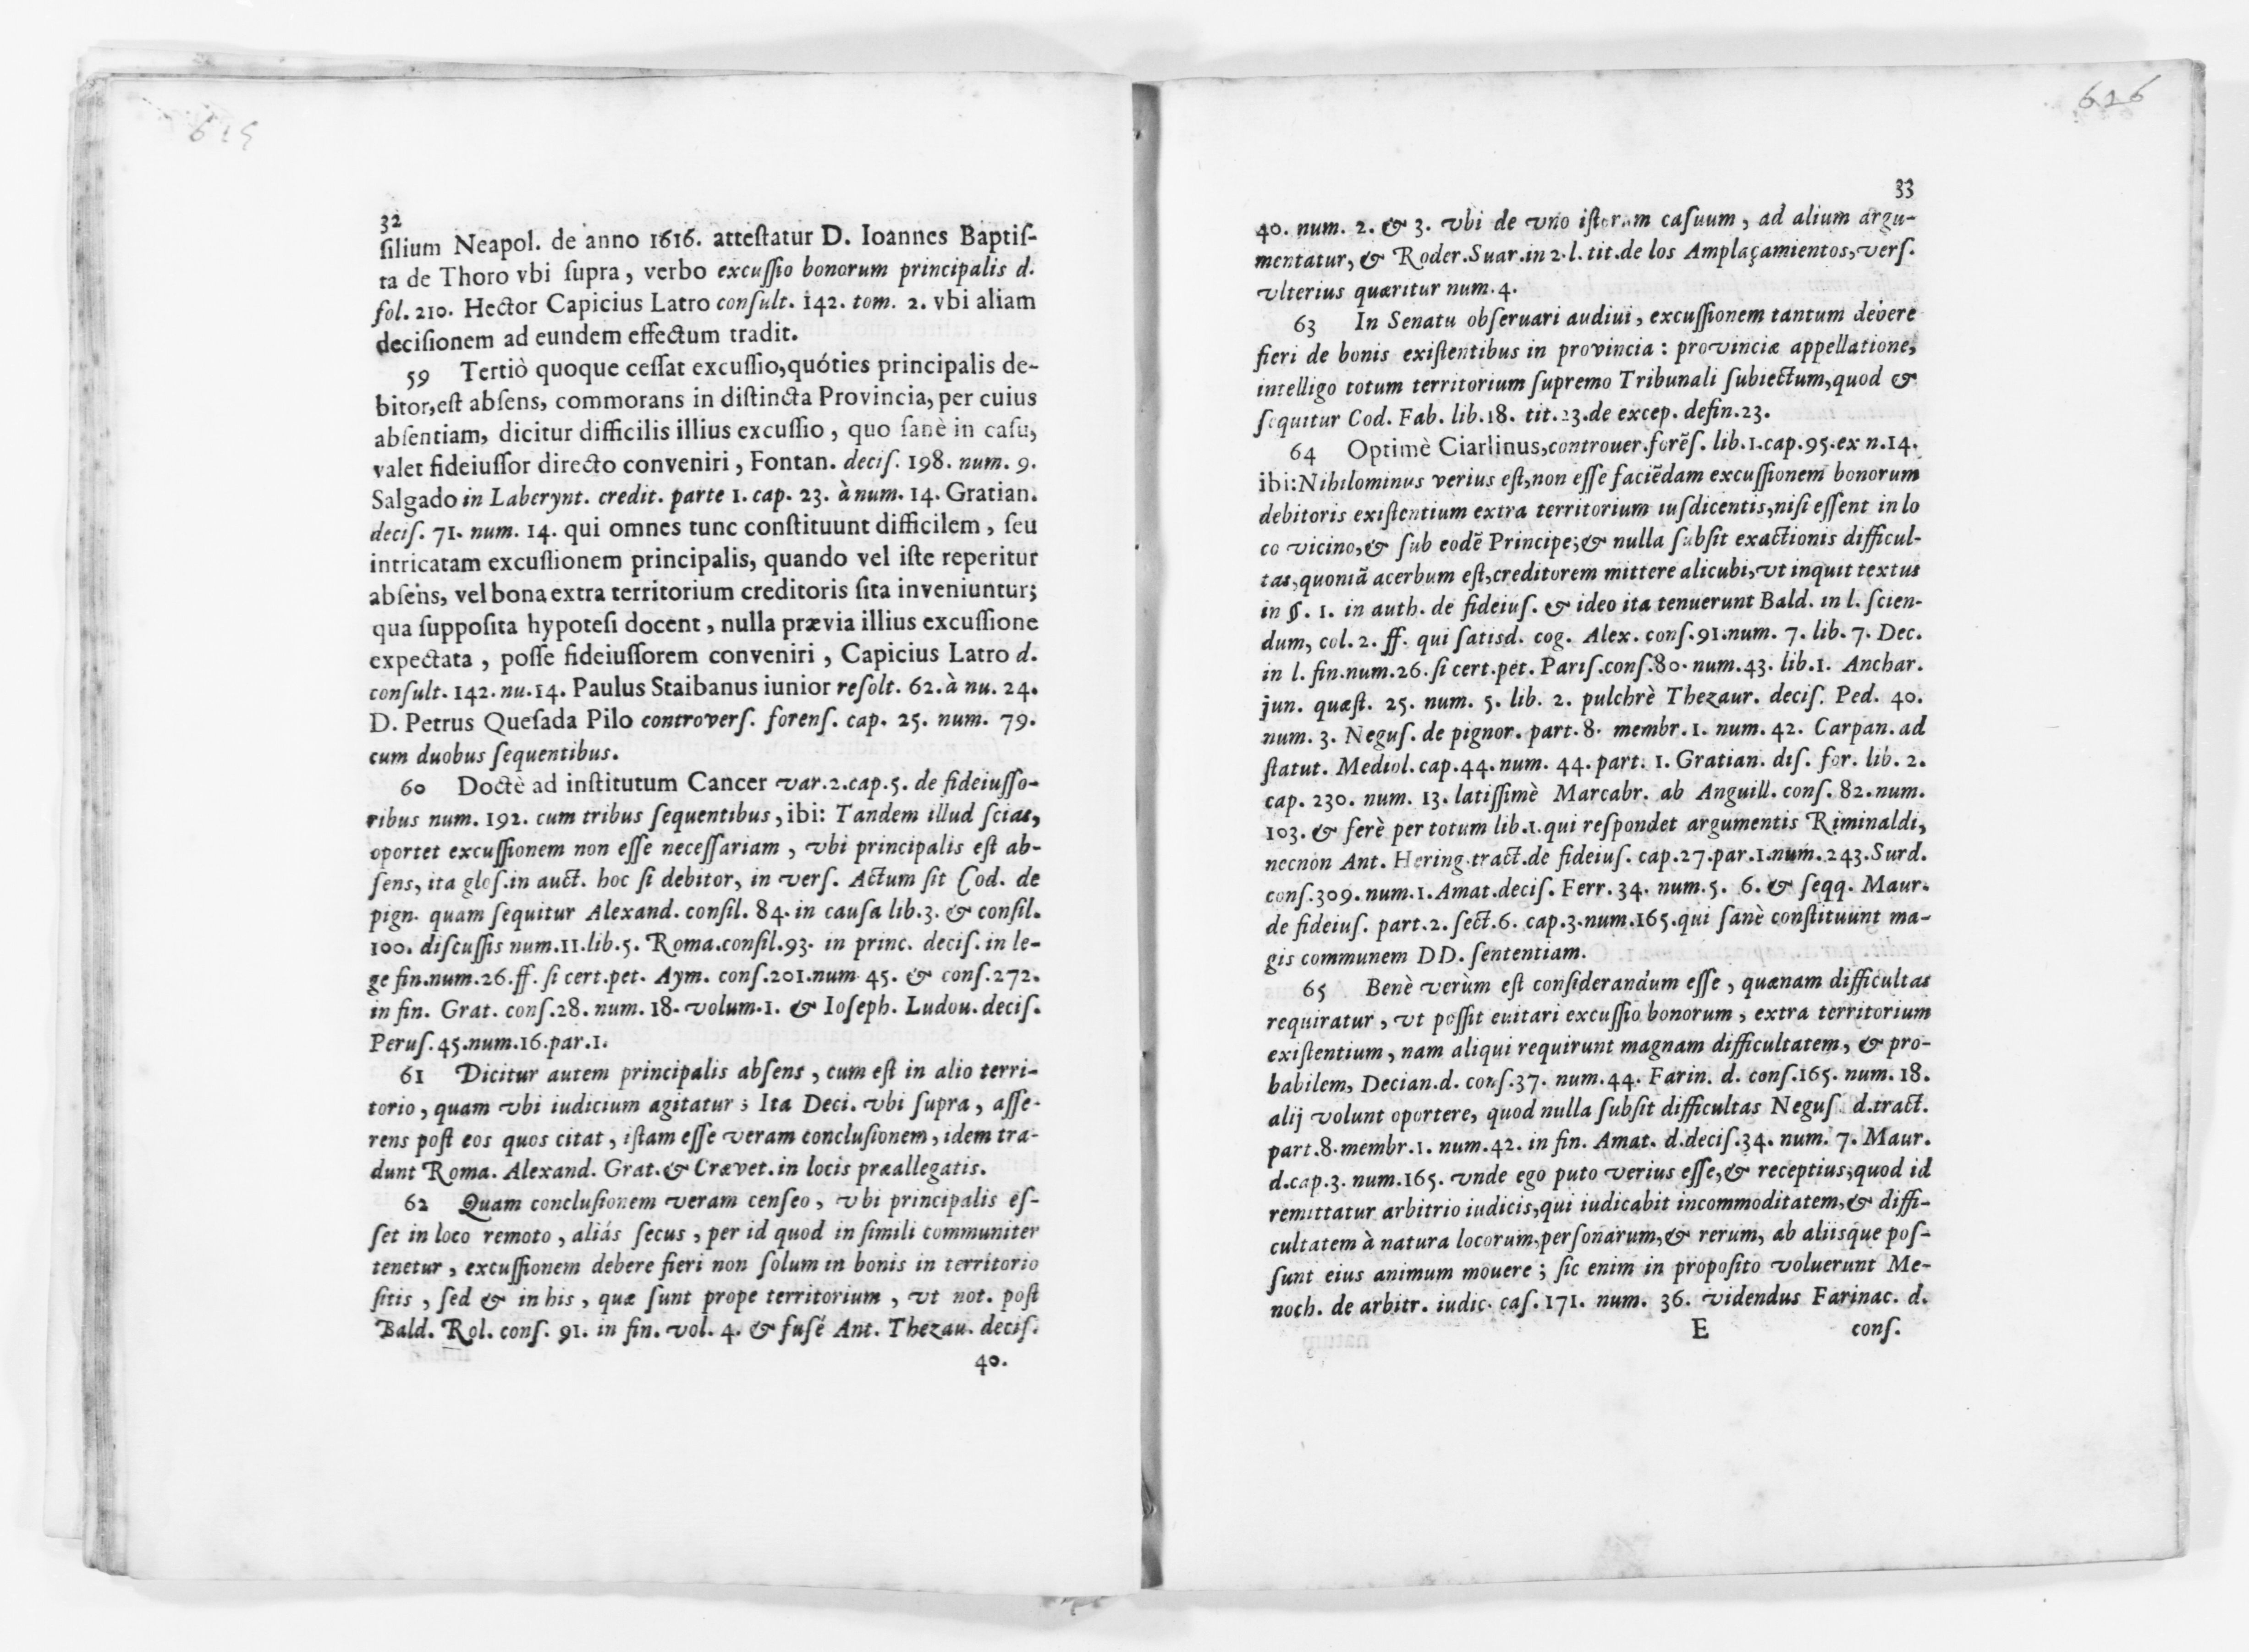 615
32
ſilium Neapol. de anno 1616. atteſtatur D. Ioannes Baptiſ-
ta de Thoro vbi ſupra, verbo excuſſio bonorum principalis d.
fol. 210. Hector Capicius Latro conſult. 142. tom. 2. vbi aliam
deciſionem ad eundem effectum tradit.
59 Tertiò quoque ceſſat excuſſio, quóties principalis de-
bitor, eſt abſens, commorans in diſtincta Provincia, per cuius
abſentiam, dicitur difficilis illius excuſſio, quo ſanè in caſu,
valet fideiuſſor directo conveniri, Fontan. deciſ. 198. num. 9.
Salgado in Laberynt. credit. parte 1. cap. 23. à num. 14. Gratian.
deciſ. 71. num. 14. qui omnes tunc conſtituunt difficilem, ſeu
intricatam excuſſionem principalis, quando vel iſte reperitur
abſens, vel bona extra territorium creditoris ſita inveniuntur;
qua ſuppoſita hypoteſi docent, nulla prævia illius excuſſione
expectata, poſſe fideiuſſorem conveniri, Capicius Latro d.
conſult. 142. nu. 14. Paulus Staibanus iunior reſolt. 62. à nu. 24.
D. Petrus Queſada Pilo controverſ. forenſ. cap. 25. num. 79.
cum duobus ſequentibus.
60 Doctè ad inſtitutum Cancer var. 2. cap. 5. de fideiuſſo-
ribus num. 192. cum tribus ſequentibus, ibi: Tandem illud ſcias,
oportet excuſſionem non eſſe neceſſariam, vbi principalis eſt ab-
ſens, ita gloſ. in auct. hoc ſi debitor, in verſ. Actum ſit Cod. de
pign. quam ſequitur Alexand. conſil. 84. in cauſa lib. 3. & conſil.
100. diſcuſſis num. 11. lib. 5. Roma. conſil. 93. in princ. deciſ. in le-
ge fin. num. 26. ff. ſi cert. pet. Aym. conſ. 201. num. 45. & conſ. 272.
in fin. Grat. conſ. 28. num. 18. volum. 1. & Ioſeph. Ludou. deciſ.
Peruſ. 45. num. 16. par. 1.
61 Dicitur autem principalis abſens, cum eſt in alio terri-
torio, quam vbi iudicium agitatur; Ita Deci. vbi ſupra, aſſe-
rens poſt eos quos citat, iſtam eſſe veram concluſionem, idem tra-
dunt Roma. Alexand. Grat. & Crævet. in locis præallegatis.
62 Quam concluſionem veram cenſeo, vbi principalis eſ-
ſet in loco remoto, aliás ſecus, per id quod in ſimili communiter
tenetur, excuſſionem debere fieri non ſolum in bonis in territorio
ſitis, ſed & in his, quæ ſunt prope territorium, vt not. poſt
Bald. Rol. conſ. 91. in fin. vol. 4. & fuſé Ant. Thezau. deciſ.
40.
626
33
40. num. 2. & 3. vbi de vno iſtorum caſuum, ad alium argu-
mentatur, & Roder. Suar. in 2. l. tit. de los Amplaçamientos, verſ.
vlterius quæritur num. 4.
63 In Senatu obſeruari audiui, excuſſionem tantum debere
fieri de bonis exiſtentibus in provincia: provinciæ appellatione,
intelligo totum territorium ſupremo Tribunali ſubiectum, quod &
ſequitur Cod. Fab. lib. 18. tit. 23. de excep. defin. 23.
64 Optimè Ciarlinus, controuer. forẽſ. lib. 1. cap. 95. ex n. 14.
ibi: Nihilominus verius eſt, non eſſe faciẽdam excuſſionem bonorum
debitoris exiſtentium extra territorium iuſdicentis, niſi eſſent in lo
co vicino, & ſub eodẽ Principe; & nulla ſubſit exactionis difficul-
tas, quoniã acerbum eſt, creditorem mittere alicubi, vt inquit textus
in §. 1. in auth. de fideiuſ. & ideo ita tenuerunt Bald. in l. ſcien-
dum, col. 2. ff. qui ſatisd. cog. Alex. conſ. 91. num. 7. lib. 7. Dec.
in l. fin. num. 26. ſi cert. pet. Pariſ. conſ. 80. num. 43. lib. 1. Anchar.
jun. quæſt. 25. num. 5. lib. 2. pulchrè Thezaur. deciſ. Ped. 40.
num. 3. Neguſ. de pignor. part. 8. membr. 1. num. 42. Carpan. ad
ſtatut. Mediol. cap. 44. num. 44. part. 1. Gratian. diſ. for. lib. 2.
cap. 230. num. 13. latiſſimè Marcabr. ab Anguill. conſ. 82. num.
103. & ferè per totum lib. 1. qui reſpondet argumentis Riminaldi,
necnòn Ant. Hering. tract. de fideiuſ. cap. 27. par. 1. num. 243. Surd.
conſ. 309. num. 1. Amat. deciſ. Ferr. 34. num. 5. 6. & ſeqq. Maur.
de fideiuſ. part. 2. ſect. 6. cap. 3. num. 165. qui ſanè conſtituunt ma-
gis communem DD. ſententiam.
65 Benè verùm eſt conſiderandum eſſe, quænam difficultas
requiratur, vt poſſit euitari excuſſio bonorum, extra territorium
exiſtentium, nam aliqui requirunt magnam difficultatem, & pro-
babilem, Decian. d. conſ. 37. num. 44. Farin. d. conſ. 165. num. 18.
alij volunt oportere, quod nulla ſubſit difficultas Neguſ. d. tract.
part. 8. membr. 1. num. 42. in fin. Amat. d. deciſ. 34. num. 7. Maur.
d. cap. 3. num. 165. vnde ego puto verius eſſe, & receptius; quod id
remittatur arbitrio iudicis, qui iudicabit incommoditatem, & diffi-
cultatem à natura locorum, perſonarum, & rerum, ab aliisque poſ-
ſunt eius animum mouere; ſic enim in propoſito voluerunt Me-
noch. de arbitr. iudic. caſ. 171. num. 36. videndus Farinac. d.
E conſ.